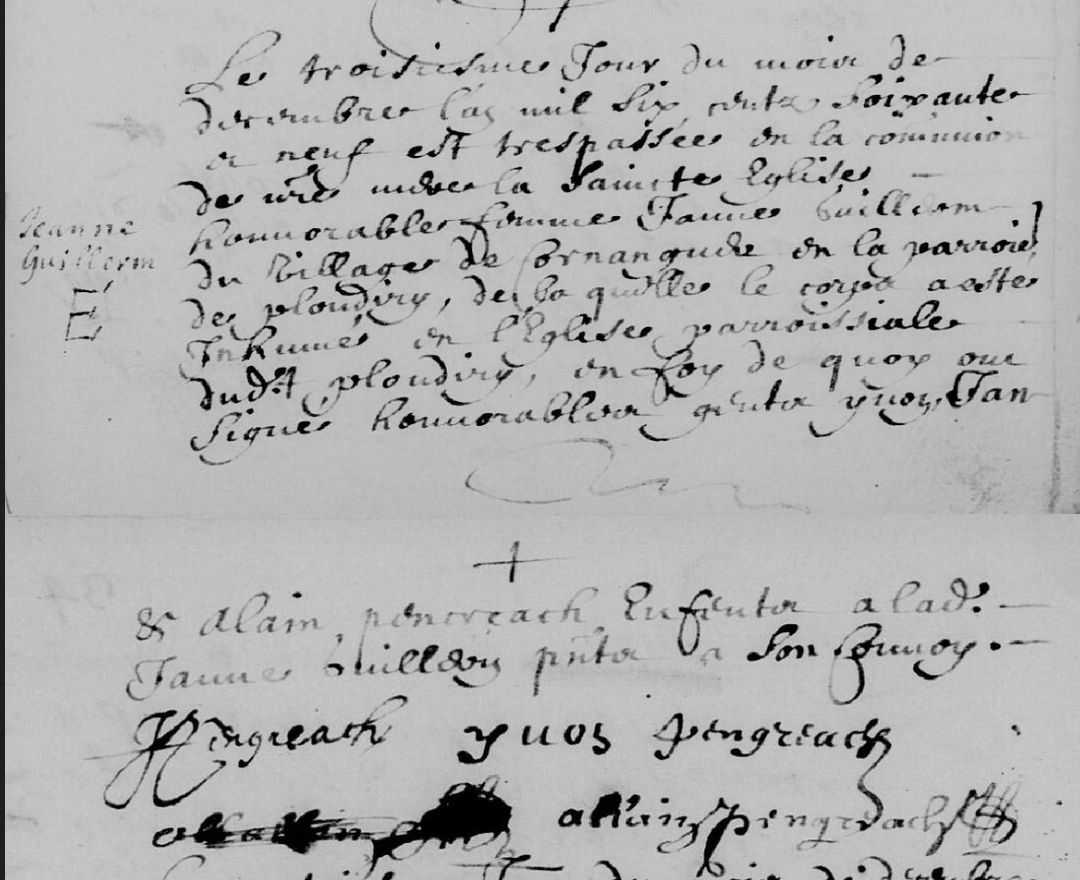 Le troisiesme Jour du mois de
decembre l'an mil six cents soixante
et neuf est trespassée en la communion
de nre mere la Saincte Eglise
honnorable femme Janne Guillerm
du Village de Cornanguer en la parroie
de ploudiry, de la quelle le corps a este
Inhumé en l'Eglise parroissiale
dudt ploudiry, en foy de quoy ont
Signe honnorables gents yuon, Jan
Jeanne
Guillerm
E
+
& Alain pencreach Enfents a lade.
Janne Guillerm pnts a Son Conuoy.
Pengreach yuon Pengreach
allain Pengreach